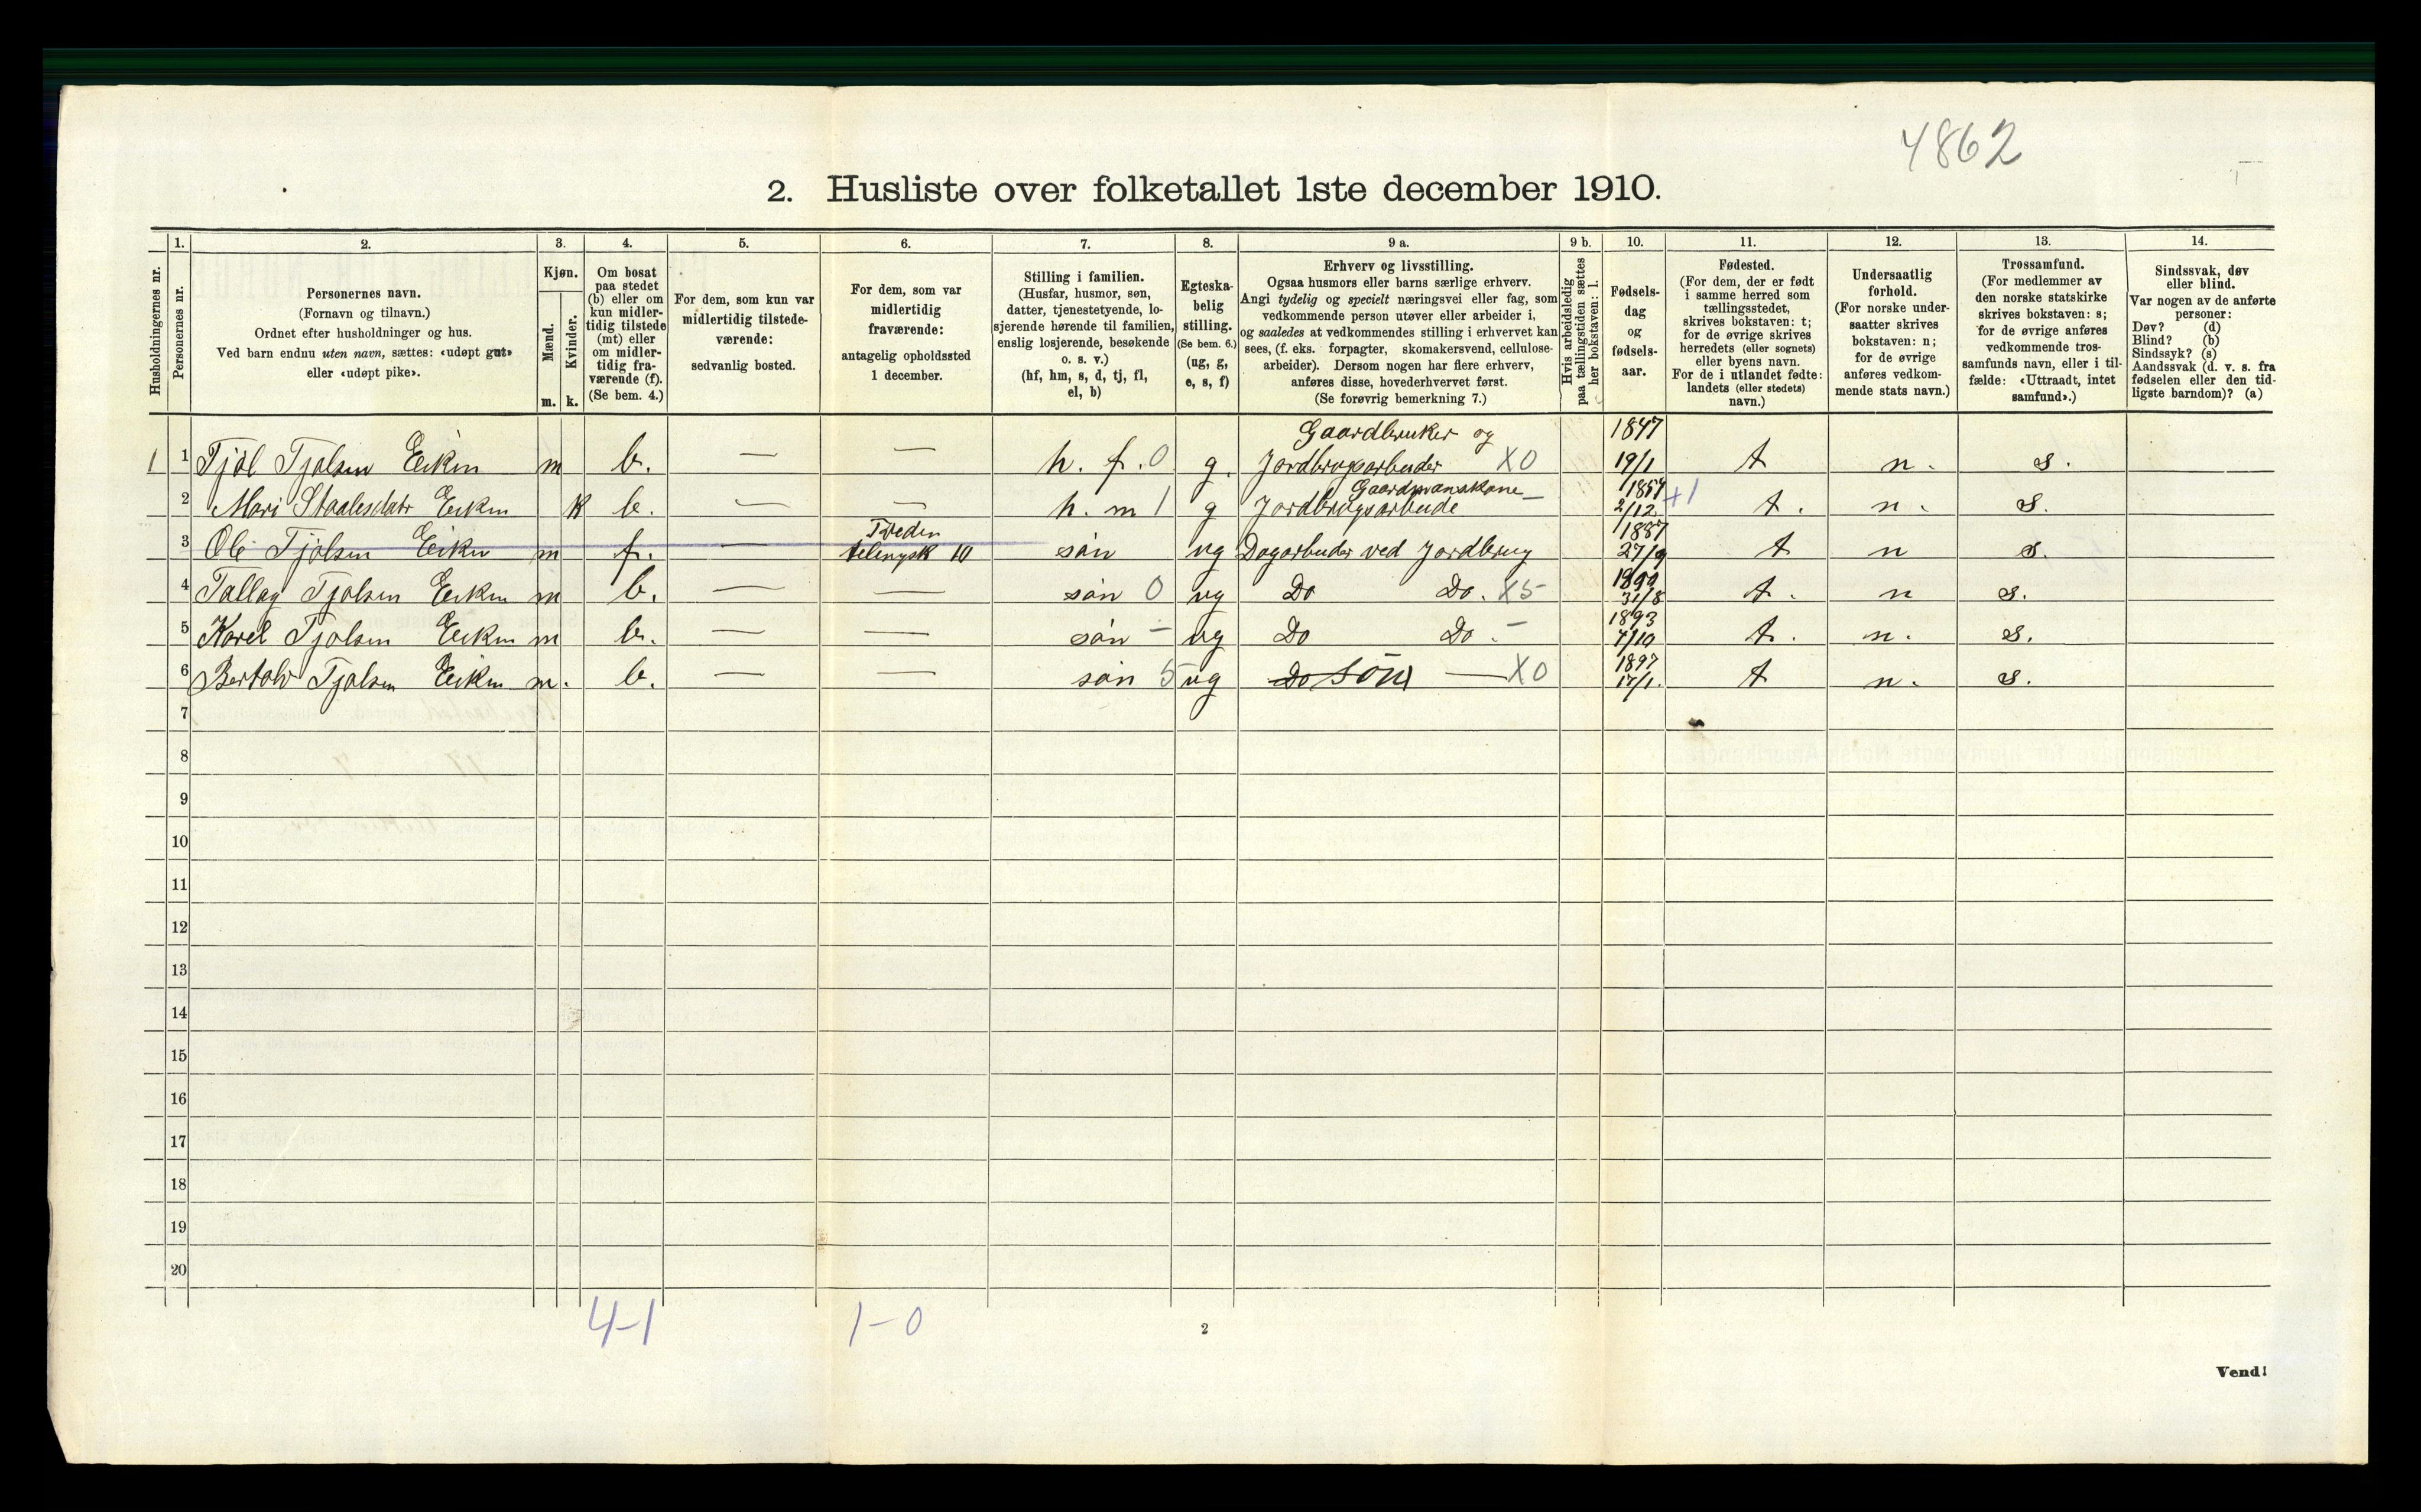 4862
2. Husliste over folketallet 1ste december 1910.
Husholdningernes nr.
1.
Personernes nr.
2.
Personernes navn.
(Fornavn og tilnavn.)
Ordnet efter husholdninger og hus.
Ved barn endnu uten navn, sættes: «udøpt gut»
eller «udøpt pike».
3.
Kjøn.
Mænd.
Kvinder.
m. k.
4.
Om bosat
paa stedet
(b) eller om
kun midler-
tidig tilstede
(mt) eller
om midler-
tidig fra-
værende (f).
(Se bem. 4.)
5.
For dem, som kun var
midlertidig tilstede-
værende:
sedvanlig bosted.
6.
For dem, som var
midlertidig
fraværende:
antagelig opholdssted
1 december.
7.
Stilling i familien.
(Husfar, husmor, søn,
datter, tjenestetyende, lo-
sjerende hørende til familien,
enslig losjerende, besøkende
o. s. v.)
(hf, hm, s, d, tj, fl,
el, b)
8.
Egteska-
belig
stilling.
(Se bem. 6.)
(ug, g,
e, s, f)
9 a.
Erhverv og livsstilling.
Ogsaa husmors eller barns særlige erhverv.
Angi tydelig og specielt næringsvei eller fag, som
vedkommende person utøver eller arbeider i,
og saaledes at vedkommendes stilling i erhvervet kan
sees, (f. eks. forpagter, skomakersvend, cellulose-
arbeider). Dersom nogen har flere erhverv,
anføres disse, hovederhvervet først.
(Se forøvrig bemerkning 7.)
9 b.
Hvis arbeidsledig
paa tællingstiden sættes
her bokstaven: l.
10.
Fødsels-
dag
og
fødsels-
aar.
11.
Fødested.
(For dem, der er født
i samme herred som
tællingsstedet,
skrives bokstaven: t;
for de øvrige skrives
herredets (eller sognets)
eller byens navn.
For de i utlandet fødte:
landets (eller stedets)
navn.)
12.
Undersaatlig
forhold.
(For norske under-
saatter skrives
bokstaven: n;
for de øvrige
anføres vedkom-
mende stats navn.)
13.
Trossamfund.
(For medlemmer av
den norske statskirke
skrives bokstaven: s;
for de øvrige anføres
vedkommende tros-
samfunds navn, eller i til-
fælde: «Uttraadt, intet
samfund».)
14.
Sindssvak, døv
eller blind.
Var nogen av de anførte
personer:
Døv? (d)
Blind? (b)
Sindssyk? (s)
Aandssvak (d. v. s. fra
fødselen eller den tid-
ligste barndom)? (a)
Gaardbruker og 1847
1 1 Tjøl Tjølsen Eiken m b. — — h. f. 0 g. Jordbrugsarbeider X0 19/1 t n. s.
Gaardmanskone — 1857
2 Mari Staalesdatr Eiken K b. — — h. m 1 g Jordbrugsarbeide 2/12 +1 t. n. s.
1887
3 Ole Tjølsen Eiken m f. — 10 søn ug Dagarbeider ved Jordbrug 27/9 t n s.
4 Tallag Tjølsen Eiken m b. — — søn 0 ug Do Do. X5 31/8 t. n s.
1893
5 Karel Tjølsen Eiken m b. — — søn — ug Do Do. — 7/10 t. n. s.
1897
6 Bertolv Tjølsen Eiken m. b. — — søn 5 ug Do søn — X0 17/1. t n. s.
7
8
9
10
11
12
13
14
15
16
17
18
19
20
4-1 1-0
2
Vend!